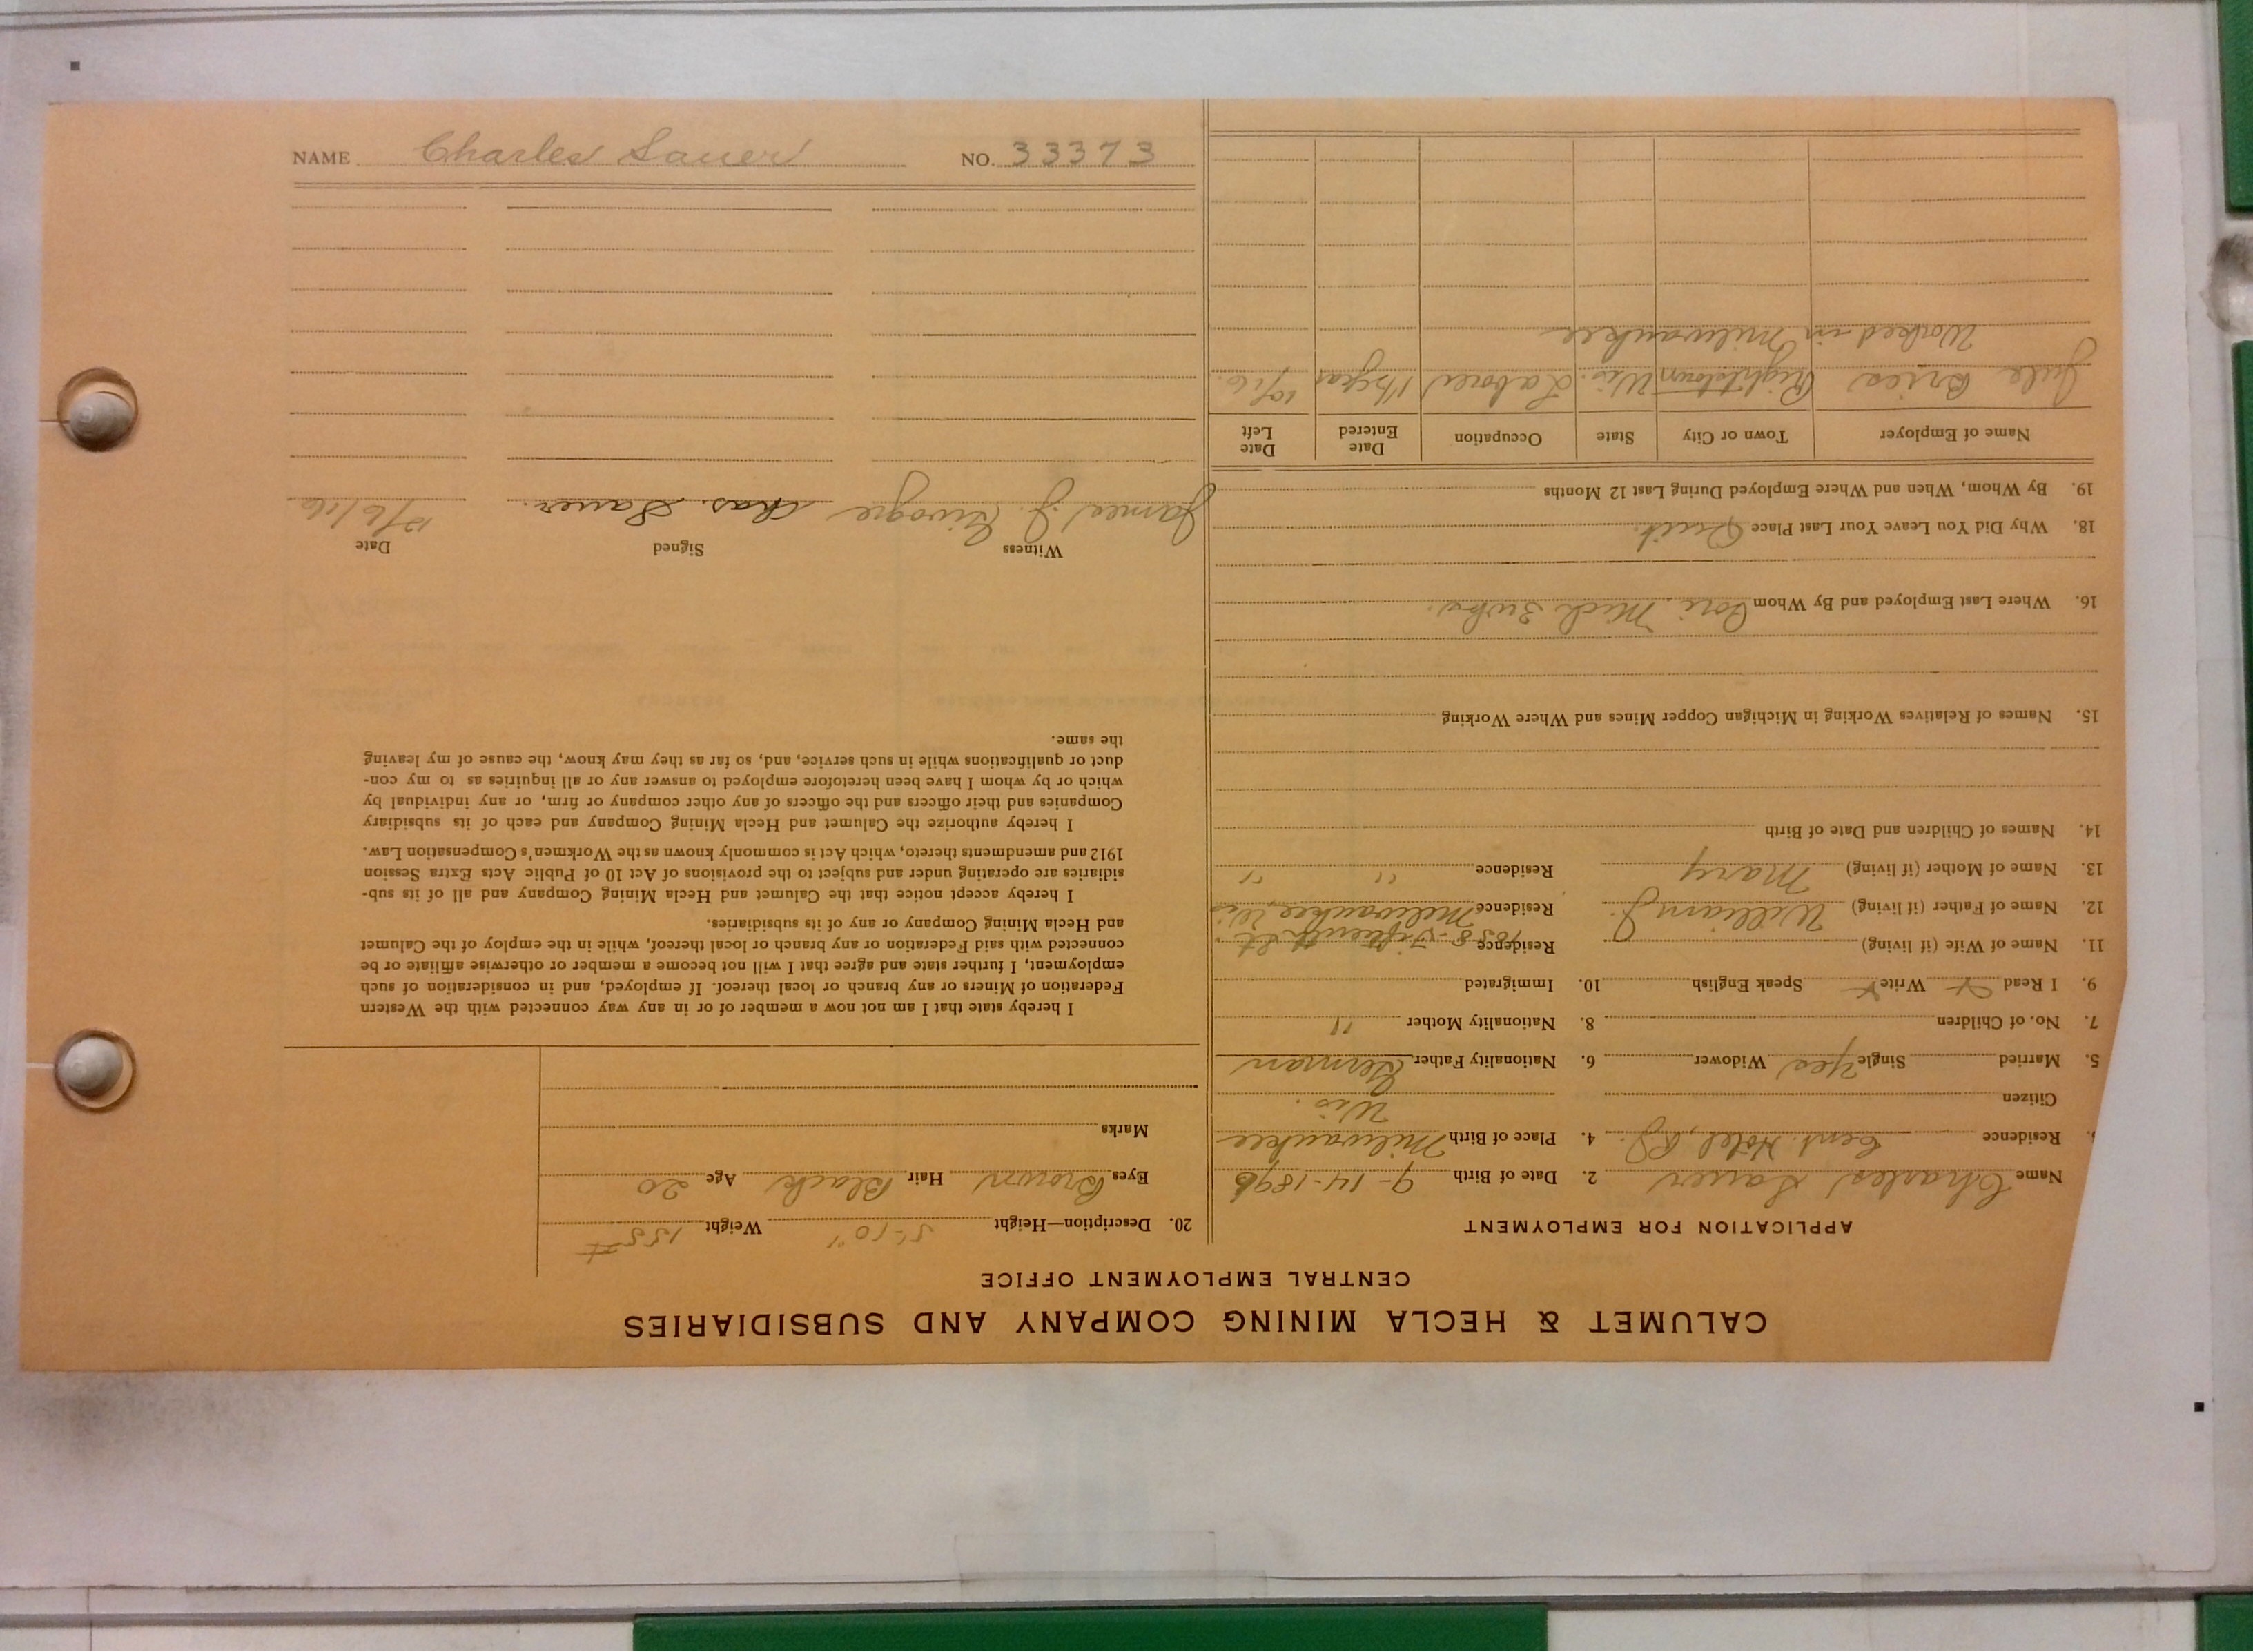 NAME Charles Sauer NO. 33373
CALUMET & HECLA MINING COMPANY AND SUBSIDIARIES
CENTRAL EMPLOYMENT OFFICE
APPLICATION FOR EMPLOYMENT
Name Charles Sauer 2. Date of Birth 9-14-1896
Residence Cent. Hotel, 4. Place of Birth Milwaukee
Citizen Wis.
5. Married Single Yes Widower 6. Nationality Father German
7. No. of Children 8. Nationality Mother "
9. I Read x Write x Speak English 10. Immigrated
11. Name of Wife (if living) Residence
12. Name of Father (if living) William J. Residence 1058- St Milwaukee, Wis
13. Name of Mother (if living) Mary Residence " "
14. Names of Children and Date of Birth
15. Names of Relatives Working in Michigan Copper Mines and Where Working
16. Where Last Employed and By Whom Mich
18. Why Did You Leave Your Last Place Quit.
19. By Whom, When and Where Employed During Last 12 Months
Name of Employer Town or City State Occupation Date Entered Date Left
Wis. Laborer 10/16.
Worked in Milwaukee
20. Description—Height 5'-10" Weight 155 #
Eyes Brown Hair Black Age 20
Marks
I hereby state that I am not now a member of or in any way connected with the Western
Federation of Miners or any branch or local thereof. If employed, and in consideration of such
employment, I further state and agree that I will not become a member or otherwise affiliate or be
connected with said Federation or any branch or local thereof, while in the employ of the Calumet
and Hecla Mining Company or any of its subsidiaries.
I hereby accept notice that the Calumet and Hecla Mining Company and all of its sub-
sidiaries are operating under and subject to the provisions of Act 10 of Public Acts Extra Session
1912 and amendments thereto, which Act is commonly known as the Workmen's Compensation Law.
I hereby authorize the Calumet and Hecla Mining Company and each of its subsidiary
Companies and their officers and the officers of any other company or firm, or any individual by
which or by whom I have been heretofore employed to answer any or all inquiries as to my con-
duct or qualifications while in such service, and, so far as they may know, the cause of my leaving
the same.
Witness Signed Date
James J. Chas. Sauer.